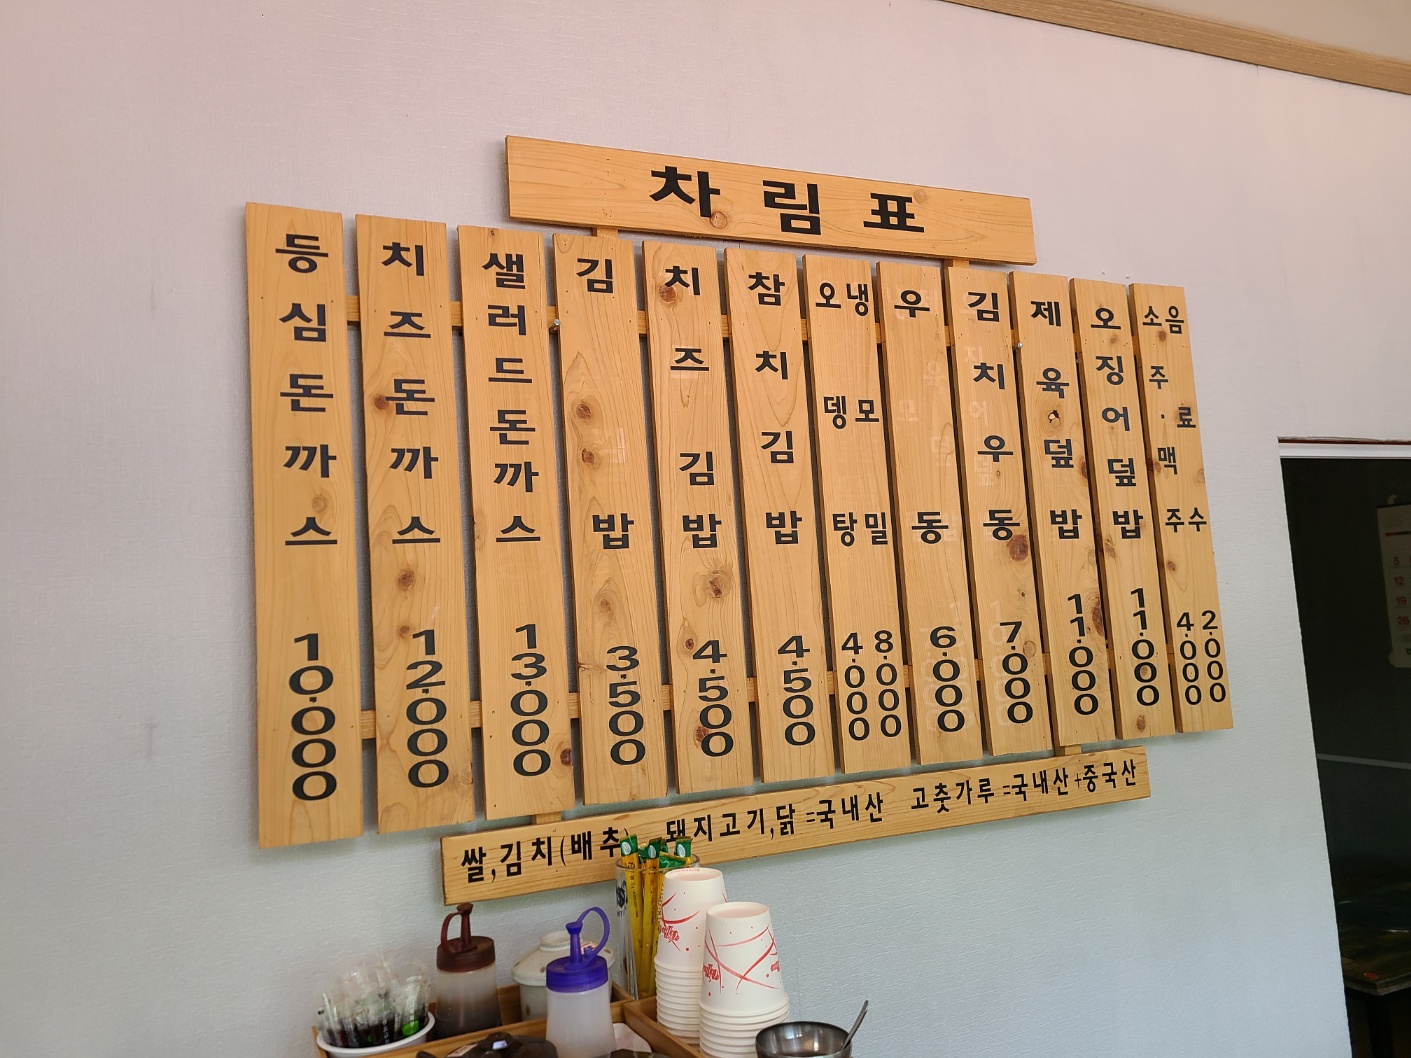 차림표
등심돈까스 10.000
치즈돈까스 12.000
샐러드돈까스 13.000
김밥 3.500
치즈김밥 4.500
참치김밥 4.500
오뎅탕 4.000
냉모밀 8.000
우동 6.000
김치우동 7.000
제육덮밥 11.000
오징어덮밥 11.000
소주·맥주 4.000
음료수 2.000
쌀,김치(배추) 돼지고기,닭=국내산 고춧가루=국내산+중국산